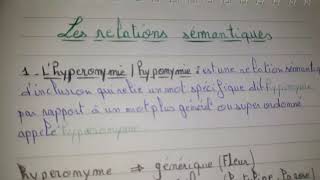 Les relations sémantiques
1 - L'hyperonymie / hyponymie : est une relation sémantiq
d'inclusion qui relie un mot spécifique dit hyponyme
par rapport à un mot plus général ou superordonné
appelé hyperonyme
hyperonyme ⇒ générique (Fleur)